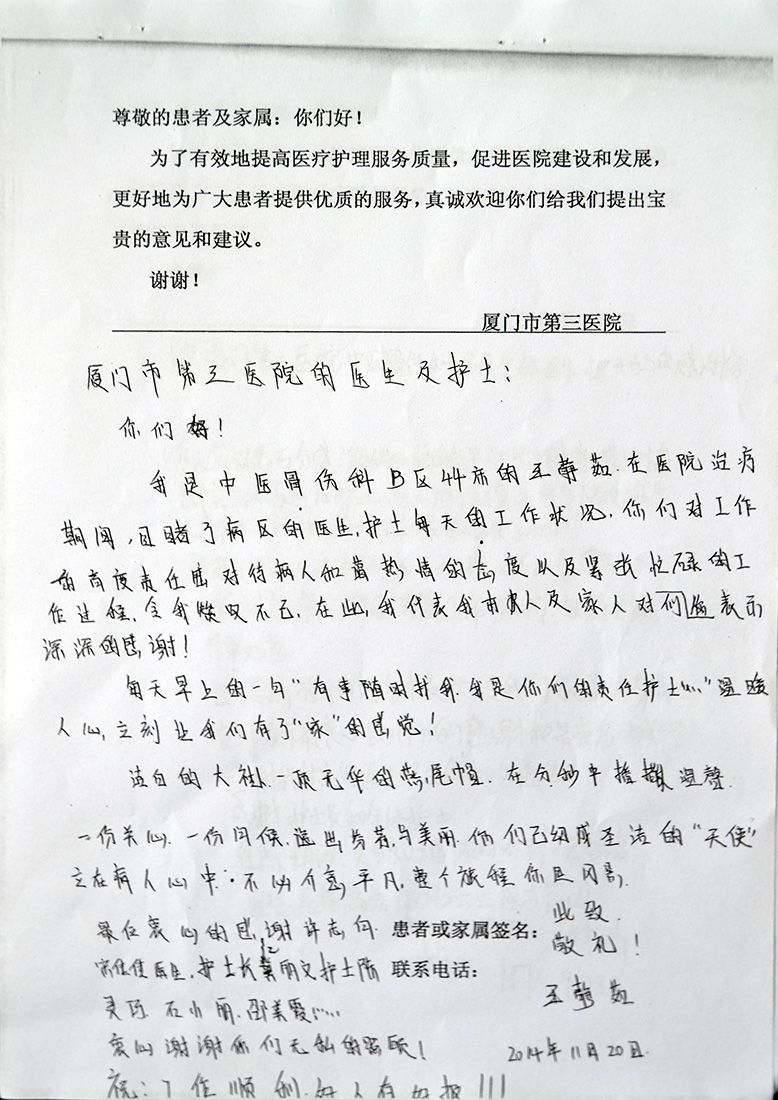 尊敬的患者及家属：你们好！
为了有效地提高医疗护理服务质量，促进医院建设和发展，
更好地为广大患者提供优质的服务，真诚欢迎你们给我们提出宝
贵的意见和建议。
谢谢！
厦门市第三医院
厦门市第三医院的医生及护士：
你们好！
我是中医骨伤科B区44床的王 茹.在医院治疗
期间,目睹了病区的医生,护士每天的工作状况.你们对工作
高度责任感对待病人和蔼热情的态度以及紧张忙碌的工
作过程.令我赞叹不已.在此,我代表我本人及家人对 表示
深深的感谢！
每天早上的一句"有事随时找我.我是你们的责任护士……"温暖
人心,立刻让我们有了"家"的感觉！
洁白的大褂.一顶无华的燕尾帽.在分秒中 温馨
一份关心.一份问候.透出 与美丽.你们已组成圣洁的"天使"
立在病人心中.不必介意平凡,整个旅程你是风景.
最后衷心的感谢许志向.
患者或家属签名：
此致.
敬礼！
医生,护士长龚丽文护士陈
联系电话：
灵巧 石小丽.邵美霞……
王 茹
衷心谢谢你们无私的 ！
2014年11月20日.
祝:工作顺利.好人有好报!!!